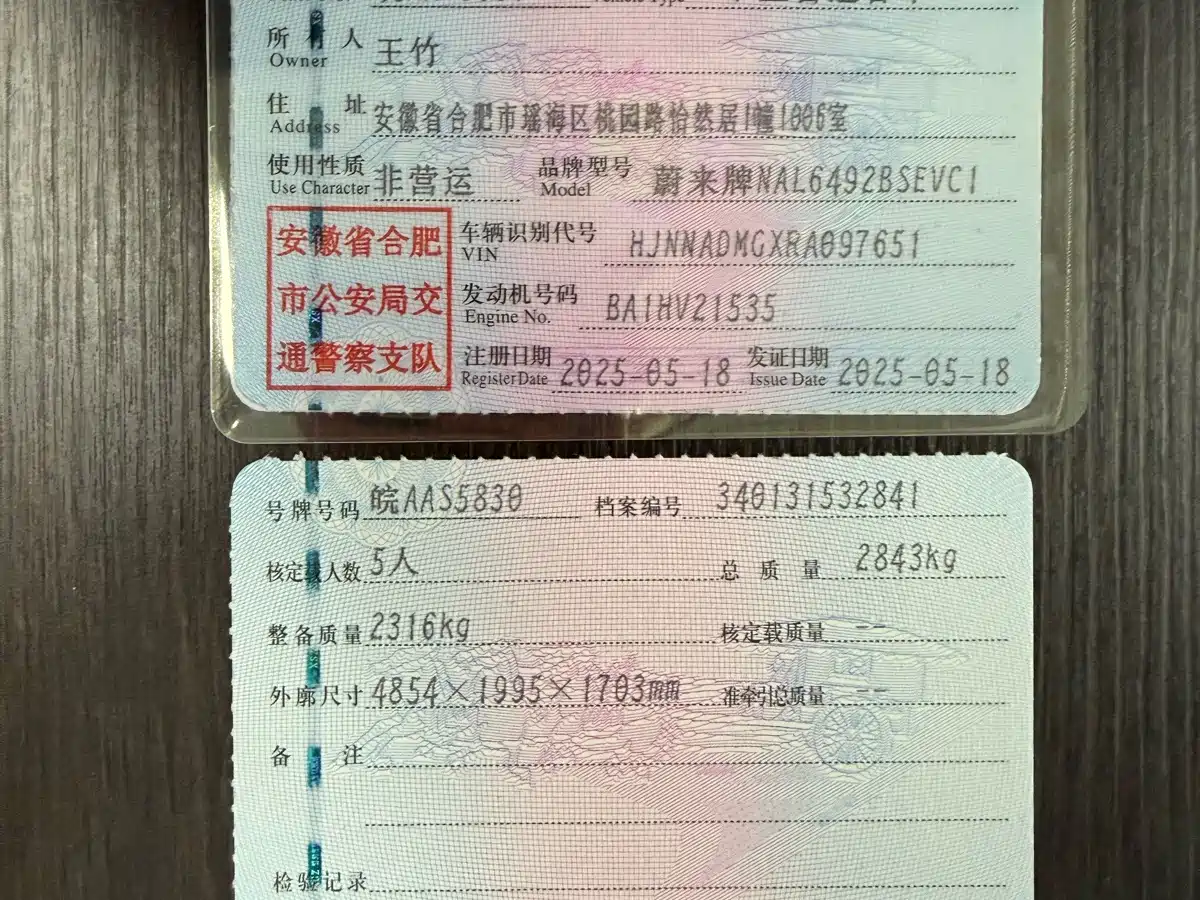 Vehicle Type
所有人 王竹
Owner
住址 安徽省合肥市瑶海区桃园路怡然居1幢1006室
Address
使用性质 非营运 品牌型号 蔚来牌NAL6492BSEVC1
Use Character Model
安徽省合肥
市公安局交
通警察支队
车辆识别代号 HJNNADMGXRA097651
VIN
发动机号码 BA1HV21535
Engine No.
注册日期 2025-05-18 发证日期 2025-05-18
Register Date Issue Date
号牌号码 皖AAS5830 档案编号 340131532841
核定载人数 5人 总质量 2843kg
整备质量 2316kg 核定载质量 --
外廓尺寸 4854×1995×1703mm 准牵引总质量 --
备注
检验记录